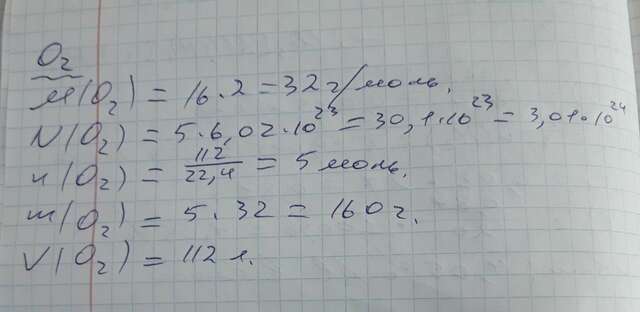 O₂
M(O₂) = 16·2 = 32 г/моль.
N(O₂) = 5·6,02·10²³ = 30,1·10²³ = 3,01·10²⁴
n(O₂) = 112/22,4 = 5 моль.
m(O₂) = 5·32 = 160 г.
V(O₂) = 112 л.